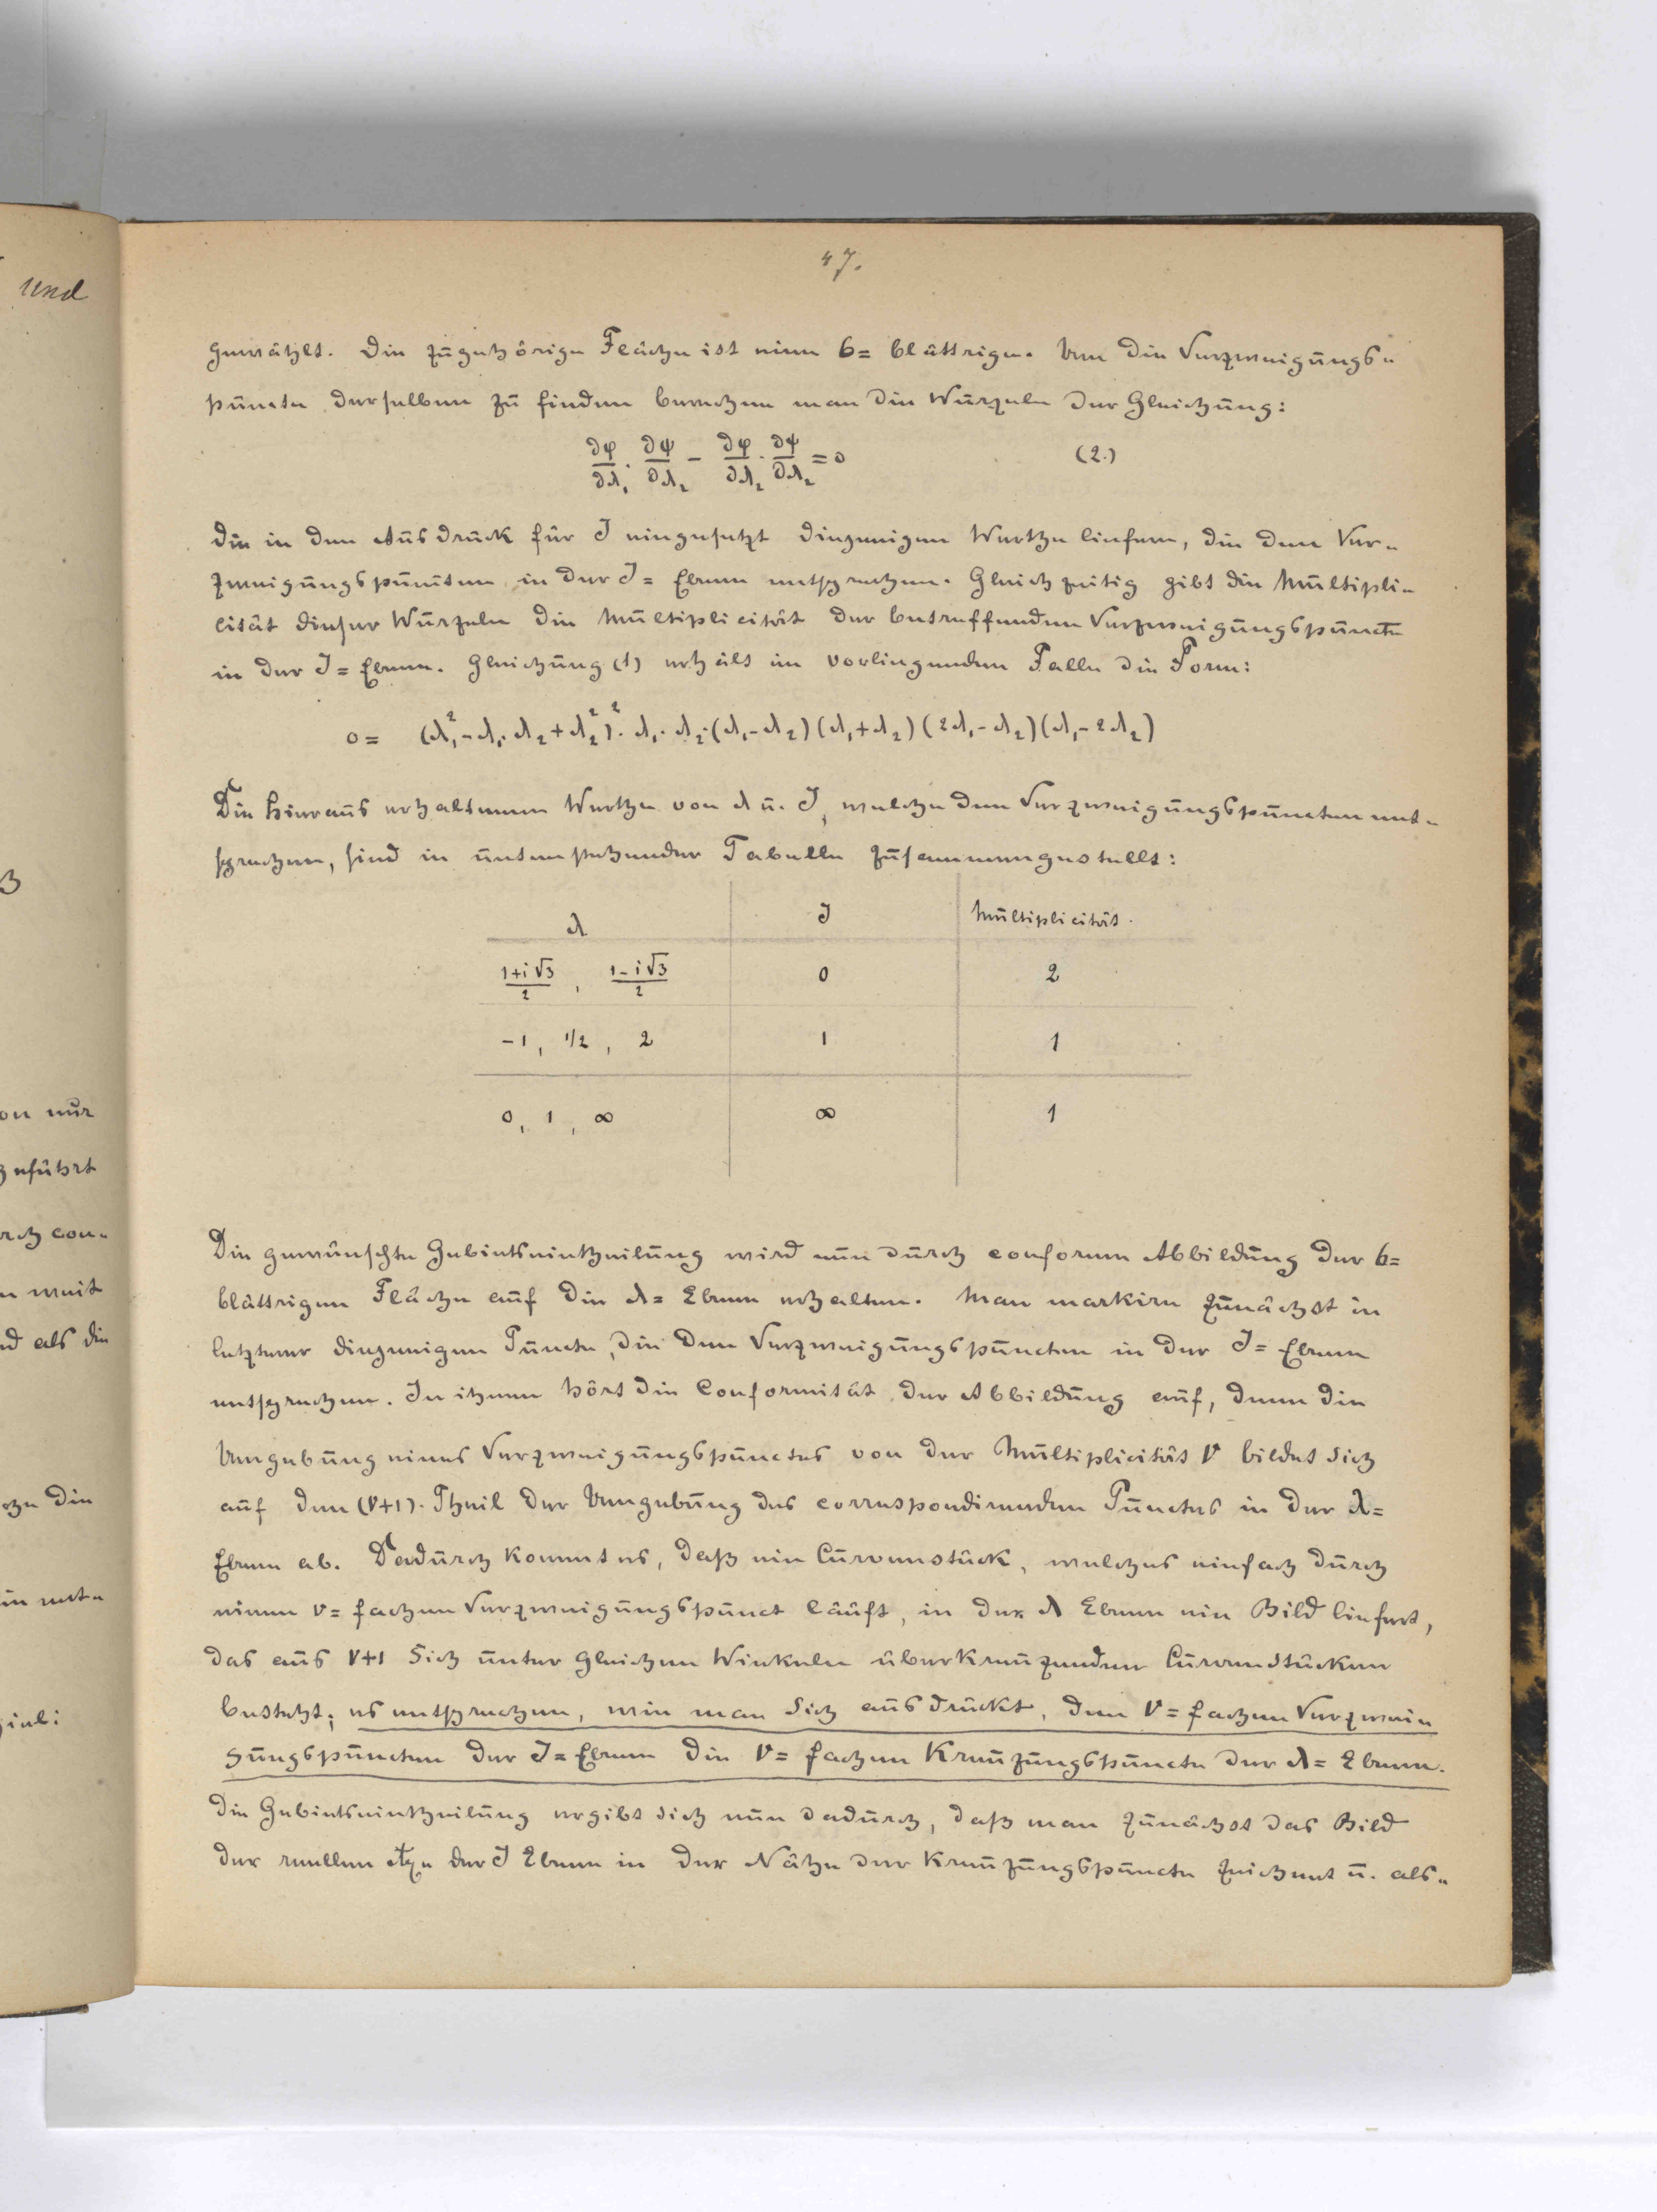 und
on nur
führt
con-
weit
als die
die
ent-
47.
gewählt. Die zugehörige Fläche ist eine 6= blättrige. Um die Verzweigungs-
puncte derselben zu finden berechne man die Wurzeln der Gleichung:
∂φ/∂λ₁ · ∂ψ/∂λ₂ − ∂φ/∂λ₂ · ∂ψ/∂λ₁ = 0 (2.)
die in den Ausdruck für J eingesetzt diejenigen Werthe liefern, die den Ver-
zweigungspuncten in der J= Ebene entsprechen. Gleichzeitig gibt die Multipli-
cität dieser Wurzeln die Multiplicität der betreffenden Verzweigungspuncte
in der J= Ebene. Gleichung (1) erhält im vorliegenden Falle die Form:
0 = (λ₁² − λ₁·λ₂ + λ₂²)²· λ₁· λ₂·(λ₁−λ₂)(λ₁+λ₂)(2λ₁−λ₂)(λ₁−2λ₂)
Die hieraus erhaltenen Werthe von λ u. J, welche den Verzweigungspuncten ent-
sprechen, sind in untenstehender Tabelle zusammengestellt:
λ J Multiplicität.
(1+i√3)/2 , (1−i√3)/2 0 2
−1, 1/2, 2 1 1
0, 1, ∞ ∞ 1
Die gewünschte Gebietseintheilung wird nun durch conforme Abbildung der 6=
blättrigen Fläche auf die λ= Ebene erhalten. Man markire zunächst in
letzterer diejenigen Puncte, die den Verzweigungspuncten in der J= Ebene
entsprechen. In ihnen hört die Conformität der Abbildung auf, denn die
Umgebung eines Verzweigungspunctes von der Multiplicität ν bildet sich
auf den (ν+1). Theil der Umgebung des correspondirenden Punctes in der λ=
Ebene ab. Dadurch kommt es, daß ein Curvenstück, welches einfach durch
einen ν= fachen Verzweigungspunct läuft, in der λ Ebene ein Bild liefert,
das aus ν+1 sich unter gleichen Winkeln überkreuzenden Curvenstücken
besteht; es entsprechen, wie man sich ausdrückt, den ν= fachen Verzwei-
gungspuncten der J= Ebene die ν= fachen Kreuzungspuncte der λ= Ebene.
Die Gebietseintheilung ergibt sich nun dadurch, daß man zunächst das Bild
der reellen Axe der J Ebene in der Nähe der Kreuzungspuncte zeichnet u. als-